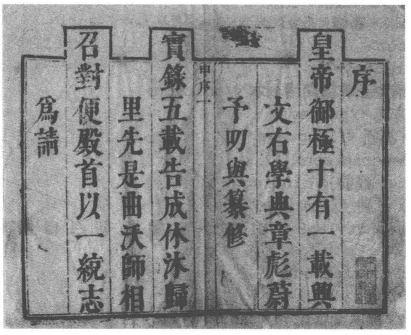 序
皇帝御極十有一載興
文右學典章彪蔚
予叨與纂修
申序一
實錄五載告成休沐歸
里先是曲沃師相
召對便殿首以一統志
為請